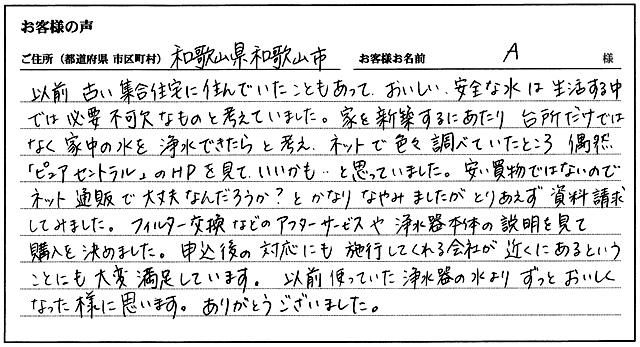 お客様の声
ご住所（都道府県 市区町村） 和歌山県和歌山市 お客様お名前 A 様
以前 古い集合住宅に住んでいたこともあって、おいしい、安全な水は生活する中
では必要不可欠なものと考えていました。家を新築するにあたり 台所だけでは
なく家中の水を浄水できたらと考え、ネットで色々調べていたところ 偶然
「ピュアセントラル」のHPを見て、いいかも…と思っていました。安い買物ではないので
ネット通販で大丈夫なんだろうか？とかなりなやみましたがとりあえず資料請求
してみました。フィルター交換などのアフターサービスや浄水器本体の説明を見て
購入を決めました。申込後の対応にも施行してくれる会社が近くにあるという
ことにも大変満足しています。以前使っていた浄水器の水よりずっとおいしく
なった様に思います。ありがとうございました。